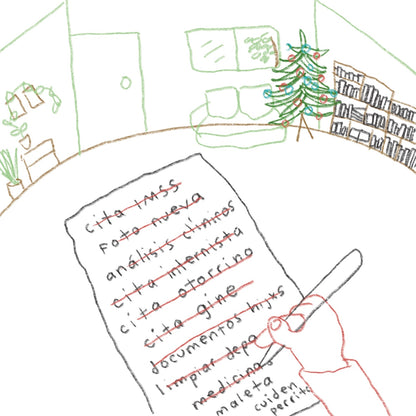 cita IMSS
Foto nueva
análisis clínicos
cita internista
cita otorrino
cita gine
documentos hjxs
limpiar depa
medicinas
maleta
cuiden
perrito